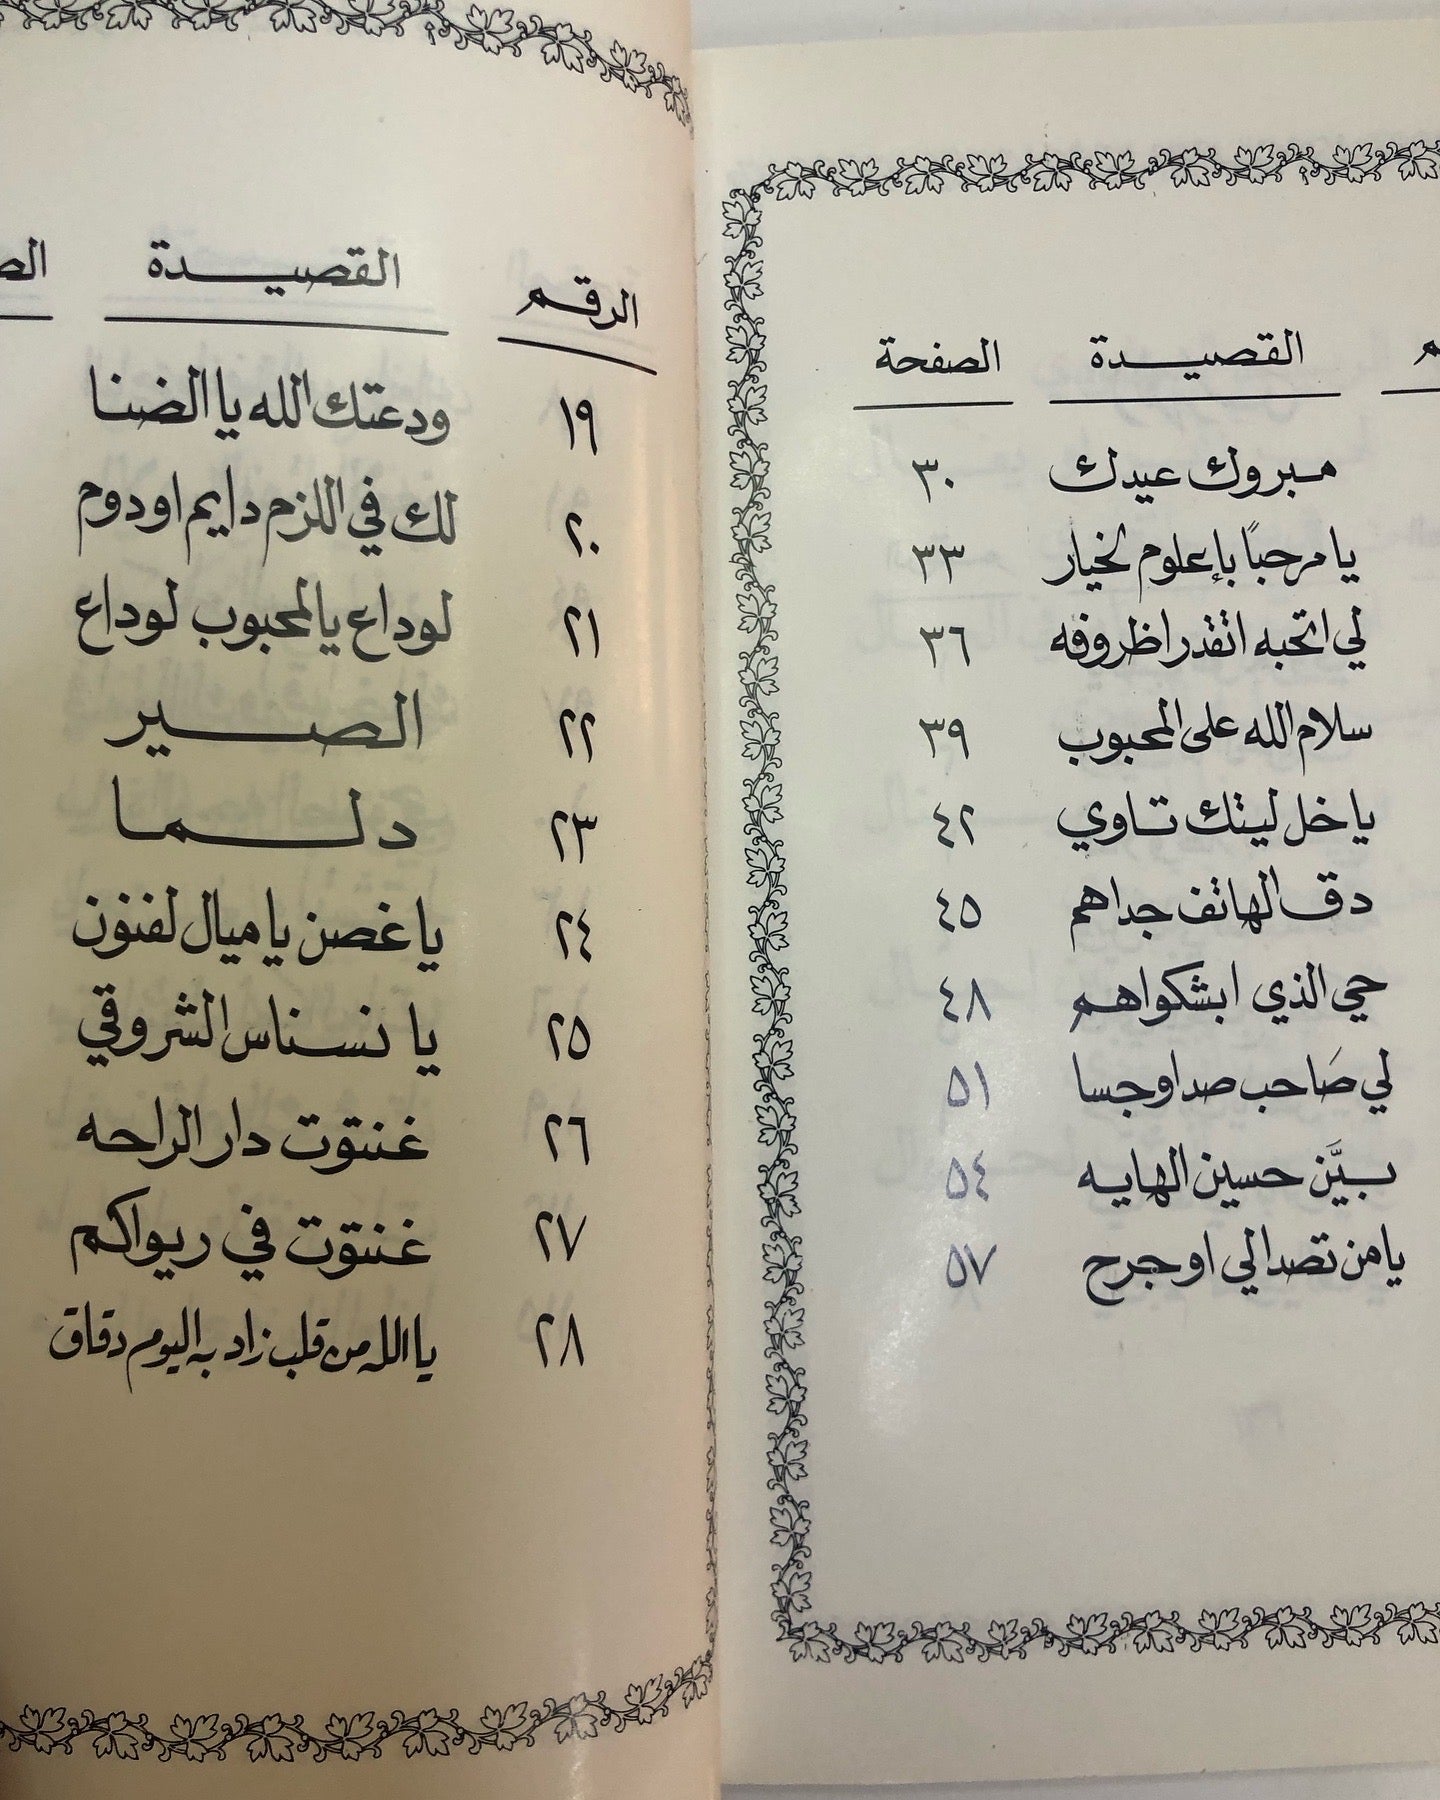 القصيدة الصفحة
مبروك عيدك ٣٠
يا مرحباً بإعلوم لخيار ٣٣
لي اتحبه اتقدر اظروفه ٣٦
سلام الله على المحبوب ٣٩
يا خل ليتك تاوي ٤٢
دق الهاتف جداهم ٤٥
حي الذي ابشكواهم ٤٨
لي صَاحب صد اوجسا ٥١
بيَّن حسين الهايه ٥٤
يا من تصدا لي اوجرح ٥٧
الرقم القصيدة
١٩ ودعتك الله يا الضنا
٢٠ لك في اللزم دايم اودوم
٢١ لوداع يالمحبوب لوداع
٢٢ الصير
٢٣ دلما
٢٤ يا غصن يا ميال لفنون
٢٥ يا نسناس الشروقي
٢٦ غنتوت دار الراحه
٢٧ غنتوت في ريواكم
٢٨ يا الله من قلب زاد به اليوم دقاق